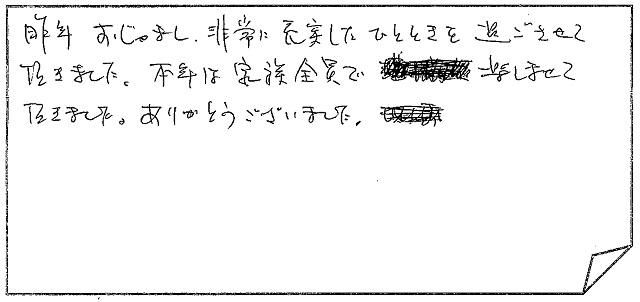 昨年 おじゃまし、非常に充実したひとときを過ごさせて
頂きました。本年は家族全員で 楽しませて
頂きました。ありがとうございました。